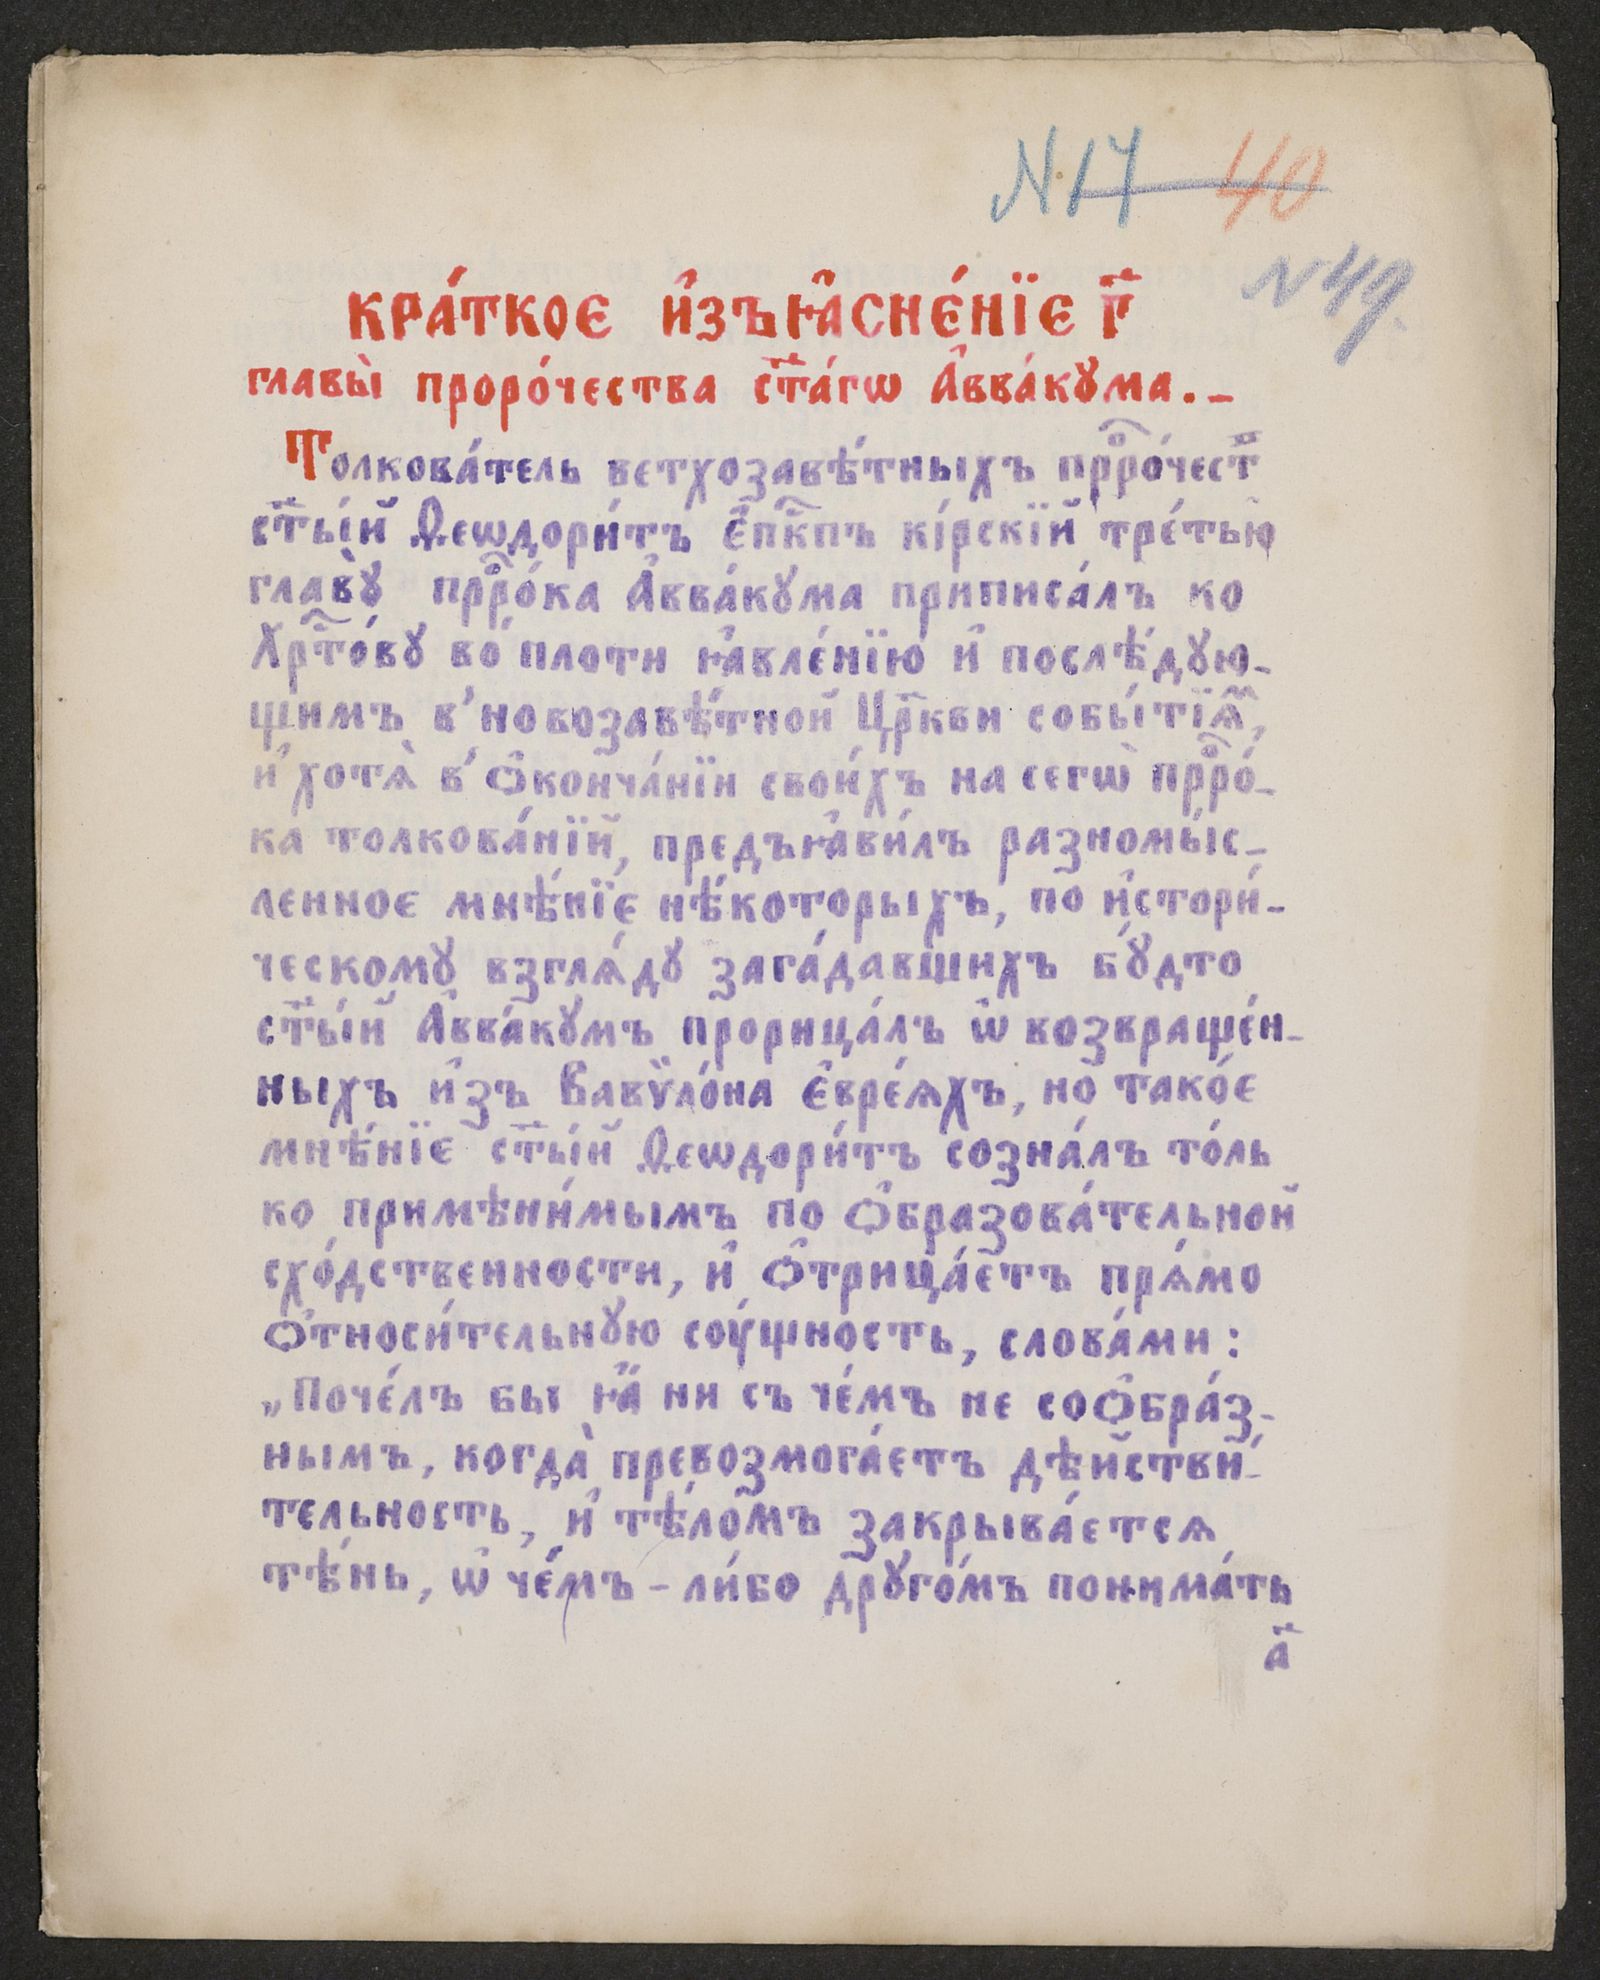 N 17 40
N 49.
КРА́ТКОЕ И҆ЗЪꙖ҆СНЕ́НЇЕ Г҃
главы̀ проро́чества ст҃а́гѡ А҆вва́кꙋма.–
Толкова́тель ветхозавѣ́тныхъ прⷪ҇ро́чест
ст҃ы́й Ѳеѡдори́тъ Е҆пⷭ҇кпъ кі́рскїй тре́тью
главꙋ̀ прⷪ҇ро́ка А҆вва́кꙋма приписа́лъ ко
Хрⷭ҇то́вꙋ во пло́ти ꙗ҆вле́нїю и҆ послѣ́дꙋю-
щимъ в̾ новозавѣ́тной Цр҃кви собы́тїѧ,
и҆ хотѧ̀ в̾ ѻ҆конча́нїи свои́хъ на сегѡ̀ прⷪ҇ро́-
ка толкова́нїй, предъꙗ҆ви́лъ разномы́с-
ленное мнѣ́нїе нѣ́которыхъ, по и҆стори́-
ческомꙋ взглѧ́дꙋ зага́давшихъ бꙋ́дто
ст҃ы́й А҆вва́кꙋмъ прорица́лъ ѡ҆ возвраще́н-
ныхъ и҆зъ Вавѷло́на Е҆вре́ѧхъ, но тако́е
мнѣ́нїе ст҃ы́й Ѳеѡдори́тъ созна́лъ то́ль
ко примѣни́мымъ по ѻ҆бразова́тельной
схо́дственности, и҆ ѻ҆трица́етъ прѧ́мо
ѻ҆тноси́тельнꙋю соу́щность, слова́ми:
„Поче́лъ бы ꙗ҆́ ни съ че́мъ не соѻ҆бра́з-
нымъ, когда̀ превозмога́етъ дѣйстви́-
тельность, и҆ тѣ́ломъ закрыва́етсѧ
тѣ́нь, ѡ҆ че́мъ-ли́бо дрꙋго́мъ понима́ть
а҃